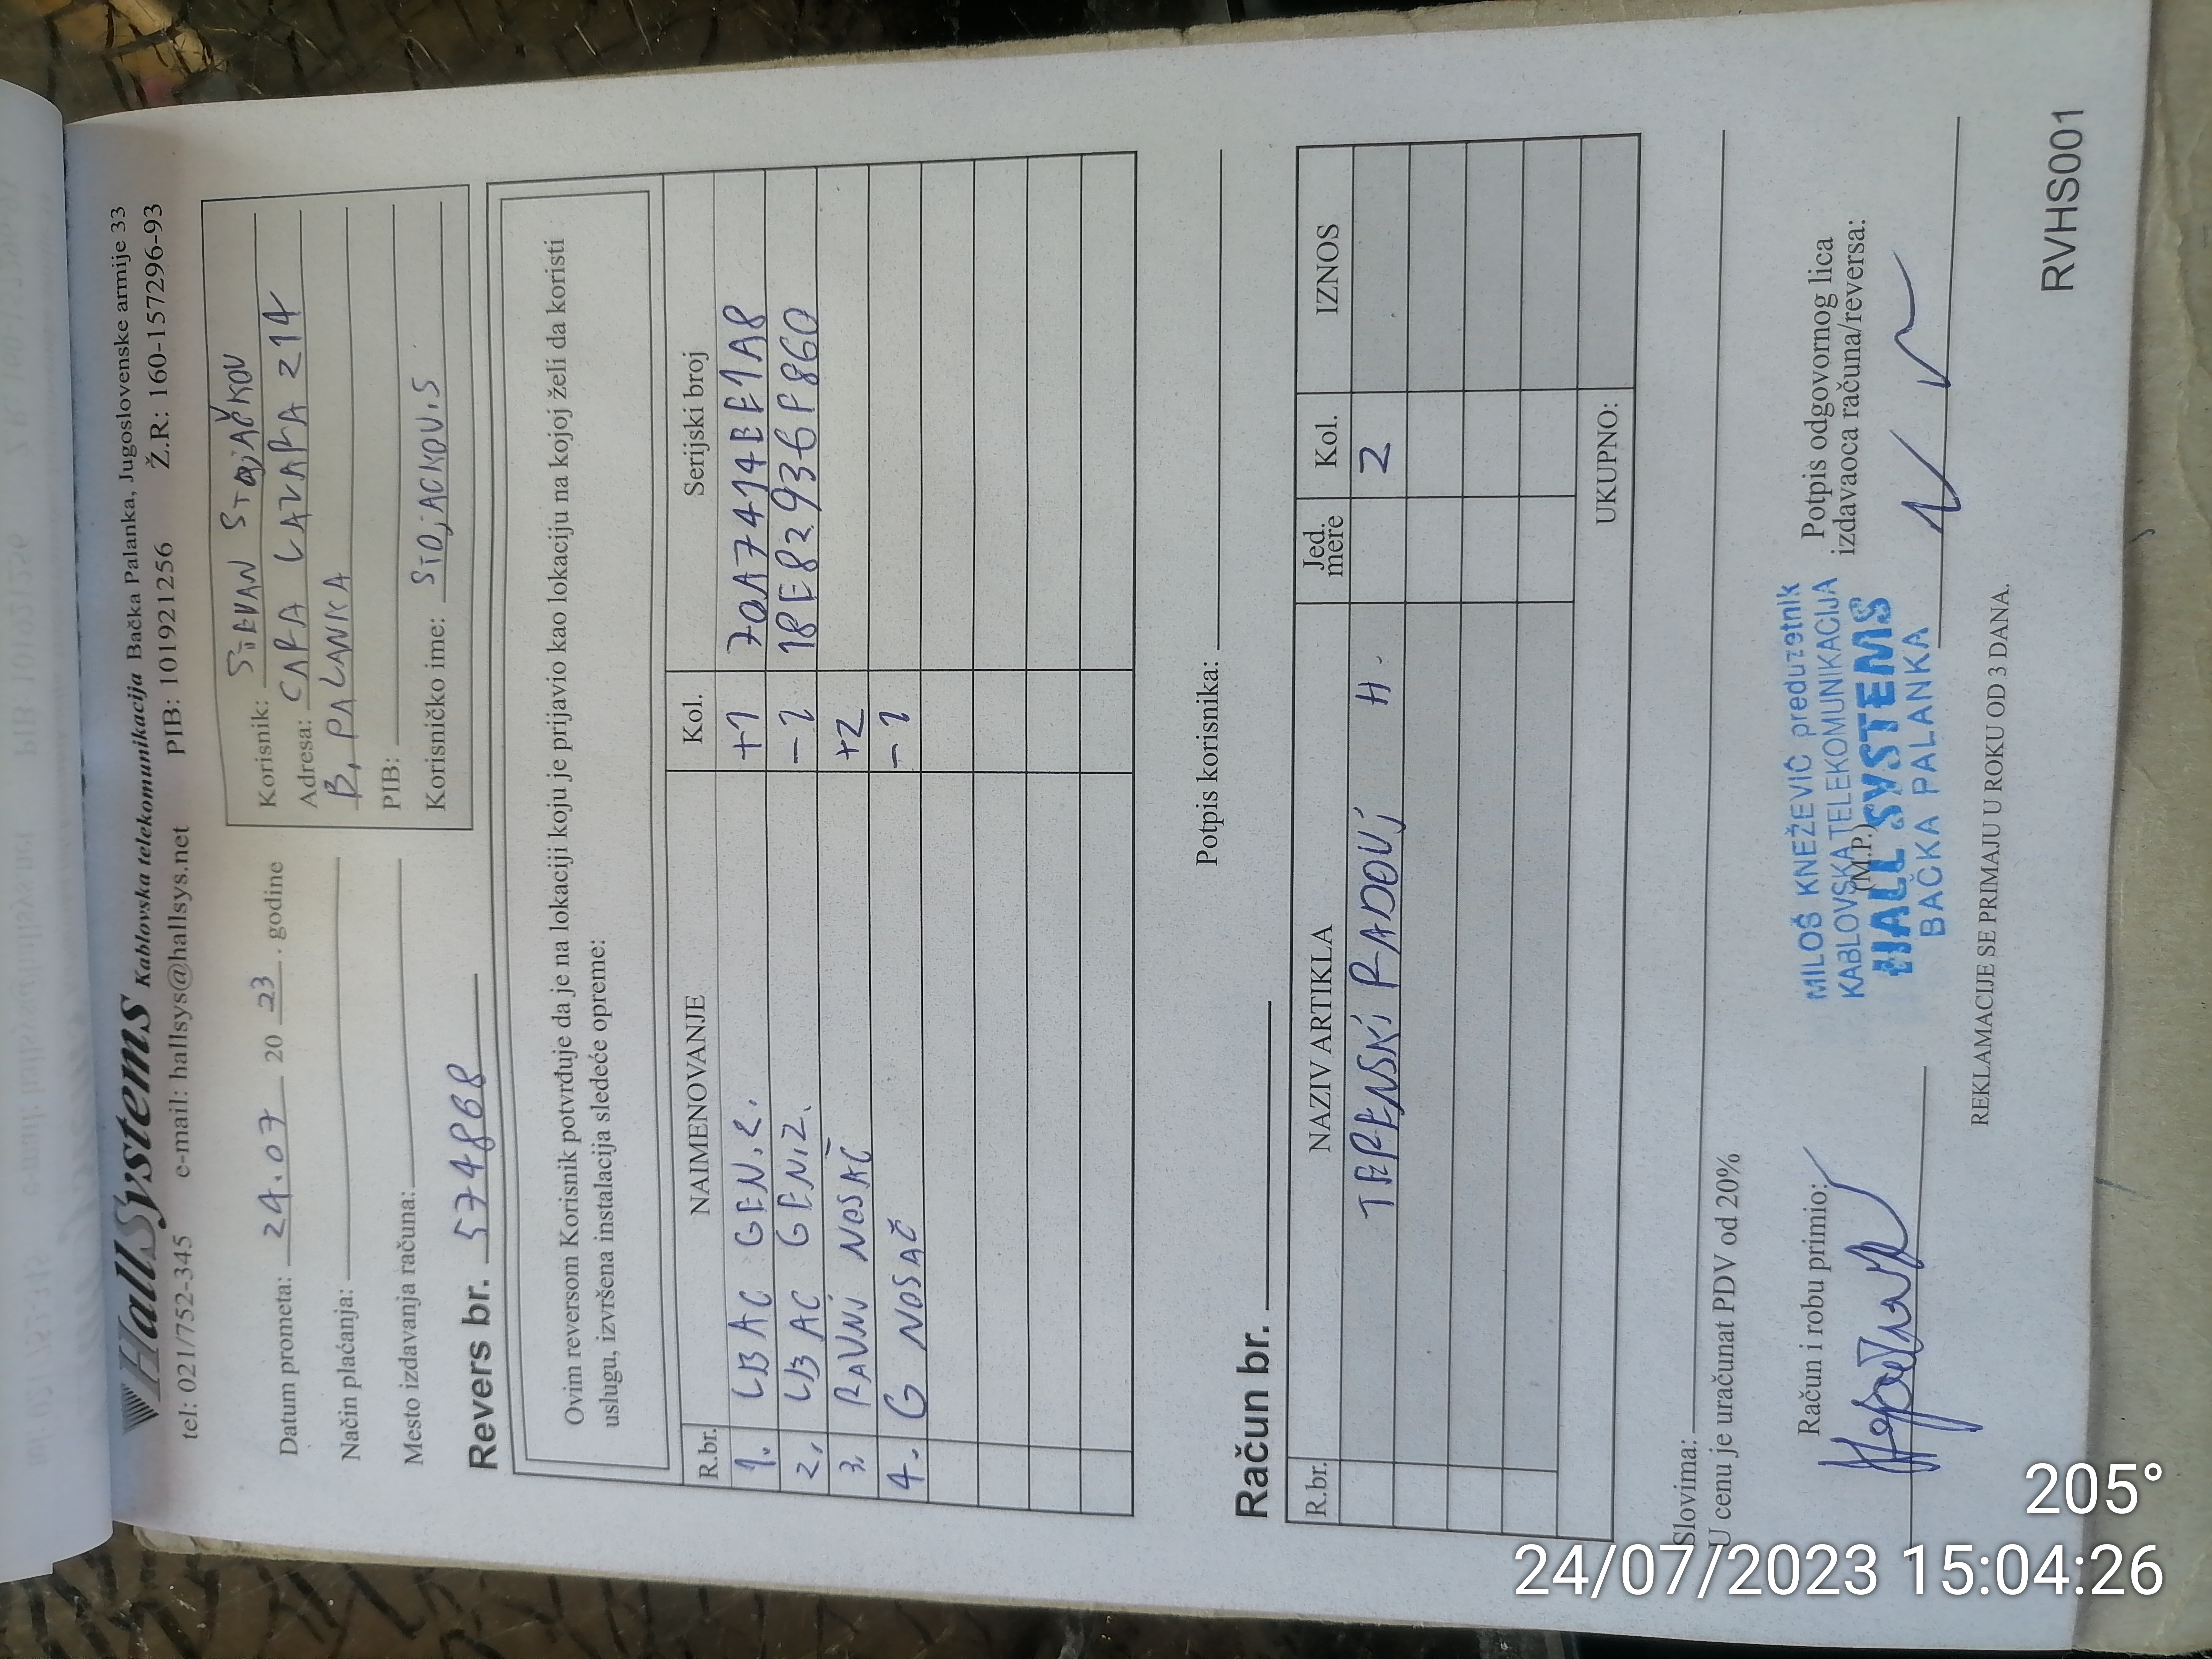 HallSystems Kablovska telekomunikacija Bačka Palanka, Jugoslovenske armije 33
tel: 021/752-345 e-mail: hallsys@hallsys.net PIB: 101921256 Ž.R.: 160-157296-93
Datum prometa: 24.07 20 23. godine
Način plaćanja:
Mesto izdavanja računa:
Korisnik: STEVAN STOJAČKOV
Adresa: CARA LAZARA 214
B. PALANKA
PIB:
Korisničko ime: STOJACKOV.S
Revers br. 574868
Ovim reversom Korisnik potvrđuje da je na lokaciji koju je prijavio kao lokaciju na kojoj želi da koristi
uslugu, izvršena instalacija sledeće opreme:
R.br. NAIMENOVANJE Kol. Serijski broj
1. LB AC GEN.2. +1 70A7414BE1A8
2. LB AC GEN.2. -1 18E82936F860
3. RAVNI NOSAČ +2
4. G NOSAČ -1
Potpis korisnika:
Račun br.
R.br. NAZIV ARTIKLA Jed. mere Kol. IZNOS
TERENSKI RADOVI H. 2
UKUPNO:
Slovima:
U cenu je uračunat PDV od 20%
Račun i robu primio:
(M.P.)
MILOŠ KNEŽEVIĆ preduzetnik
KABLOVSKA TELEKOMUNIKACIJA
HALL SYSTEMS
BAČKA PALANKA
Potpis odgovornog lica
izdavaoca računa/reversa:
REKLAMACIJE SE PRIMAJU U ROKU OD 3 DANA.
RVHS001
205°
24/07/2023 15:04:26